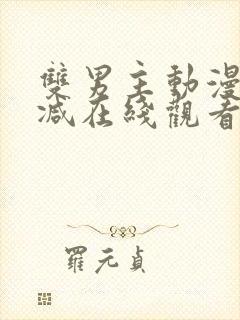 雙男主動漫
減在綫觀看
羅元貞